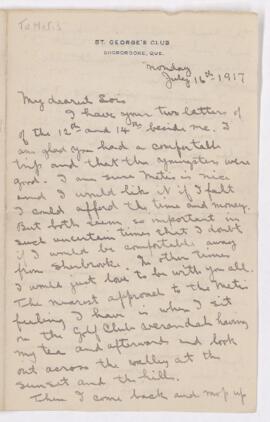 To Metis
ST. GEORGE'S CLUB
SHERBROOKE, QUE.
Monday
July 16th 1917
My dearest
I have your two letters of
of the 12th and 14th beside me. I
am glad you had a comfortable
trip and that the youngsters were
good. I am sure Metis is nice
and I would like it if I felt
I could afford the time and money.
But both seem so important in
such uncertain times that I doubt
if I would be comfortable away
from Sherbrooke. In other times
I would just love to be with you all.
The nearest approach to the Metis
feeling I have is when I sit
on the Golf Club verandah having
my tea and afterward and look
out across the valley at the
sunset and the hills.
Then I come back and mop up